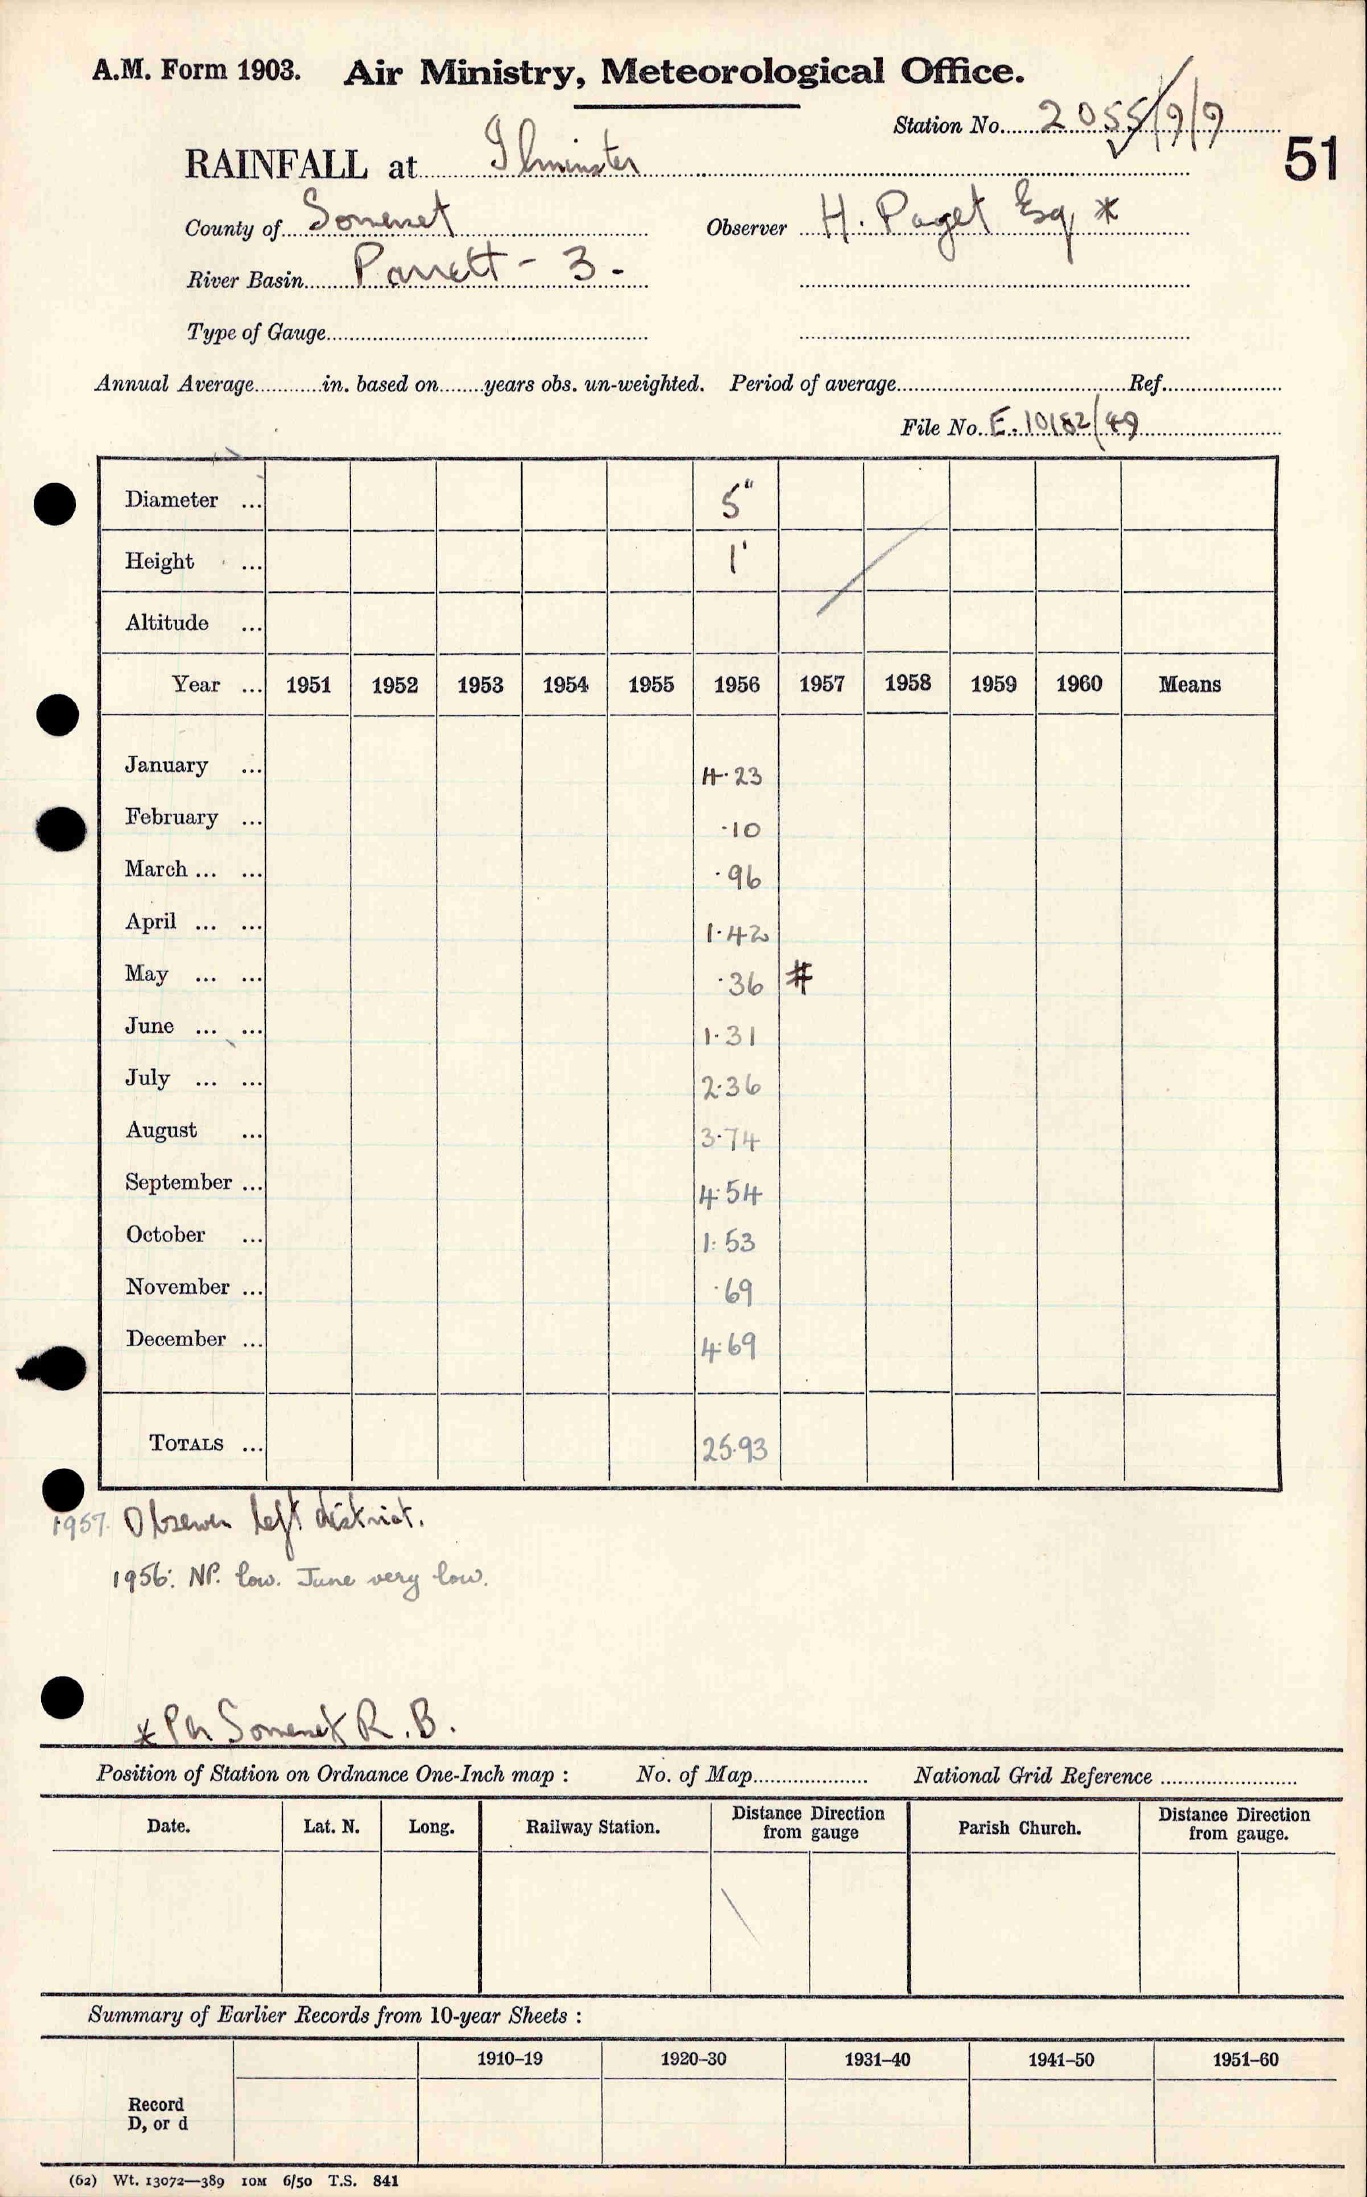 A.M. Form 1903. Air Ministry, Meteorological Office.
Station No. 2055/9/9
RAINFALL at Ilminster
51
County of Somerset Observer H. Paget Esq *
River Basin Parrett - 3 -
Type of Gauge
Annual Average in. based on years obs. un-weighted. Period of average Ref.
File No. E.10182/49
Diameter ... 5"
Height ... 1'
Altitude ...
Year ... 1951 1952 1953 1954 1955 1956 1957 1958 1959 1960 Means
January ... 4.23
February ... .10
March ... ... .96
April ... ... 1.42
May ... ... .36 #
June ... ... 1.31
July ... ... 2.36
August ... 3.74
September ... 4.54
October ... 1.53
November ... .69
December ... 4.69
TOTALS ... 25.93
1957. Observer left district.
1956: NP. low. June very low.
* Per Somerset R.B.
Position of Station on Ordnance One-Inch map : No. of Map National Grid Reference
Date. Lat. N. Long. Railway Station. Distance Direction from gauge Parish Church. Distance Direction from gauge.
Summary of Earlier Records from 10-year Sheets :
1910–19 1920–30 1931–40 1941–50 1951–60
Record
D, or d
(62) Wt. 13072—389 10M 6/50 T.S. 841